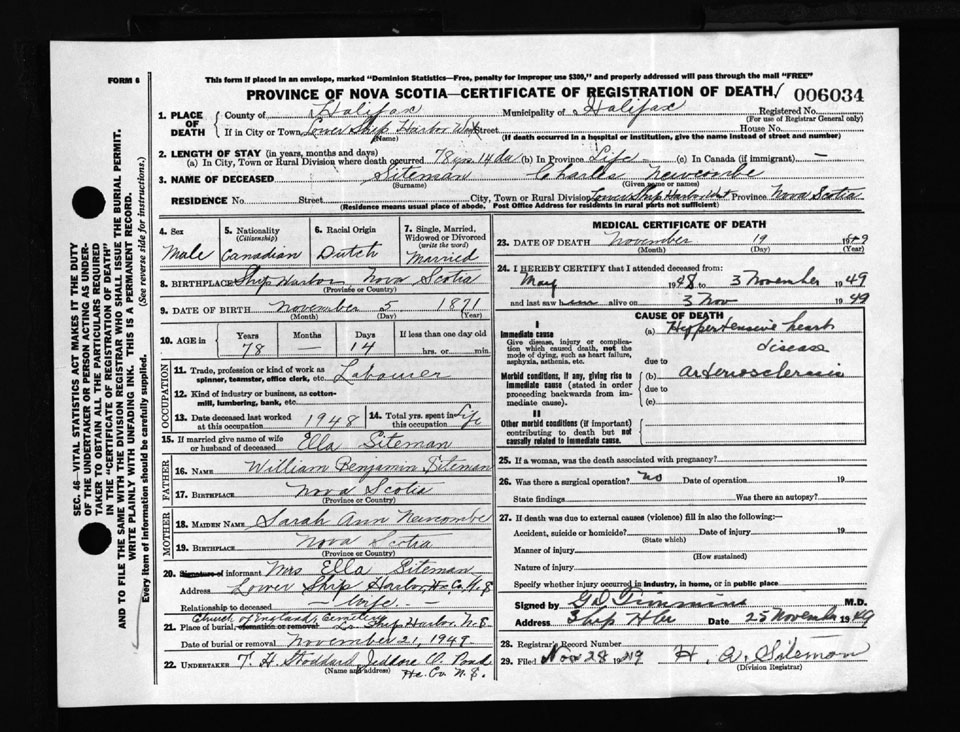 FORM 6
This form if placed in an envelope, marked "Dominion Statistics—Free, penalty for improper use $300," and properly addressed will pass through the mail "FREE"
PROVINCE OF NOVA SCOTIA—CERTIFICATE OF REGISTRATION OF DEATH
006034
SEC. 46—VITAL STATISTICS ACT MAKES IT THE DUTY
OF THE UNDERTAKER OR PERSON ACTING AS UNDER-
TAKER TO OBTAIN ALL THE PARTICULARS REQUIRED
IN THE "CERTIFICATE OF REGISTRATION OF DEATH"
AND TO FILE THE SAME WITH THE DIVISION REGISTRAR WHO SHALL ISSUE THE BURIAL PERMIT.
WRITE PLAINLY WITH UNFADING INK. THIS IS A PERMANENT RECORD.
Every item of information should be carefully supplied. (See reverse side for instructions.)
1. PLACE OF DEATH
County of Halifax Municipality of Halifax Registered No.
(For use of Registrar General only)
If in City or Town, Lower Ship Harbor West Street House No.
(Name) (If death occurred in a hospital or institution, give the name instead of street and number)
2. LENGTH OF STAY (in years, months and days)
(a) In City, Town or Rural Division where death occurred 78 yrs 14 da (b) In Province Life (c) In Canada (if immigrant) —
3. NAME OF DECEASED Siteman Charles Newcombe
(Surname) (Given name or names)
RESIDENCE No. Street City, Town or Rural Division Lower Ship Harbor West Province Nova Scotia
(Residence means usual place of abode. Post Office Address for residents in rural parts not sufficient)
4. Sex
Male
5. Nationality
(Citizenship)
Canadian
6. Racial Origin
Dutch
7. Single, Married,
Widowed or Divorced
(write the word)
Married
8. BIRTHPLACE Ship Harbor Nova Scotia
(Province or Country)
9. DATE OF BIRTH November 5 1871
(Month) (Day) (Year)
10. AGE in
Years Months Days If less than one day old
78 — 14 hrs. or min.
OCCUPATION
11. Trade, profession or kind of work as
spinner, teamster, office clerk, etc. Labourer
12. Kind of industry or business, as cotton-
mill, lumbering, bank, etc.
13. Date deceased last worked
at this occupation 1948
14. Total yrs. spent in
this occupation Life
15. If married give name of wife
or husband of deceased Ella Siteman
FATHER
16. NAME William Benjamin Siteman
17. BIRTHPLACE Nova Scotia
(Province or Country)
MOTHER
18. MAIDEN NAME Sarah Ann Newcombe
19. BIRTHPLACE Nova Scotia
(Province or Country)
20. Signature of informant Mrs Ella Siteman
Address Lower Ship Harbor, Hx Co. N.S
Relationship to deceased — Wife —
Church of England Cemetery
21. Place of burial, cremation or removal Lr Ship Harbor N.S
Date of burial or removal November 21, 1949
22. UNDERTAKER T. H. Stoddard, Jeddore O. Pond
(Name and address) Hx. Co. N.S.
MEDICAL CERTIFICATE OF DEATH
23. DATE OF DEATH November 19 1949
(Month) (Day) (Year)
24. I HEREBY CERTIFY that I attended deceased from:
May 1948 to 3 November 1949
and last saw him alive on 3 Nov 1949
CAUSE OF DEATH
I
Immediate cause
Give disease, injury or complica-
tion which caused death, not the
mode of dying, such as heart failure,
asphyxia, asthenia, etc.
(a) Hypertensive heart
disease
due to
Morbid conditions, if any, giving rise to
immediate cause (stated in order
proceeding backwards from im-
mediate cause).
(b) arteriosclerosis
due to
(c)
II
Other morbid conditions (if important)
contributing to death but not
causally related to immediate cause.
25. If a woman, was the death associated with pregnancy?
26. Was there a surgical operation? No Date of operation 19
State findings Was there an autopsy?
27. If death was due to external causes (violence) fill in also the following:—
Accident, suicide or homicide? Date of injury 19
(State which)
Manner of injury
(How sustained)
Nature of injury
Specify whether injury occurred in industry, in home, or in public place
Signed by M.D.
Address Ship Hbr Date 25 November 1949
28. Registrar's Record Number
29. Filed Nov 28 1949 Siteman
(Division Registrar)